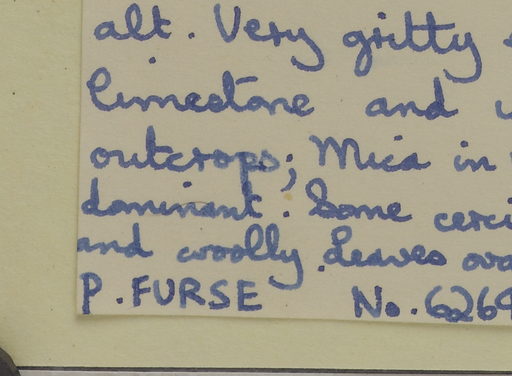 alt. Very gritty
limestone and
outcrops; Mica in
dominant. Some cerci
and woolly. Leaves ova
P. FURSE No. 6269